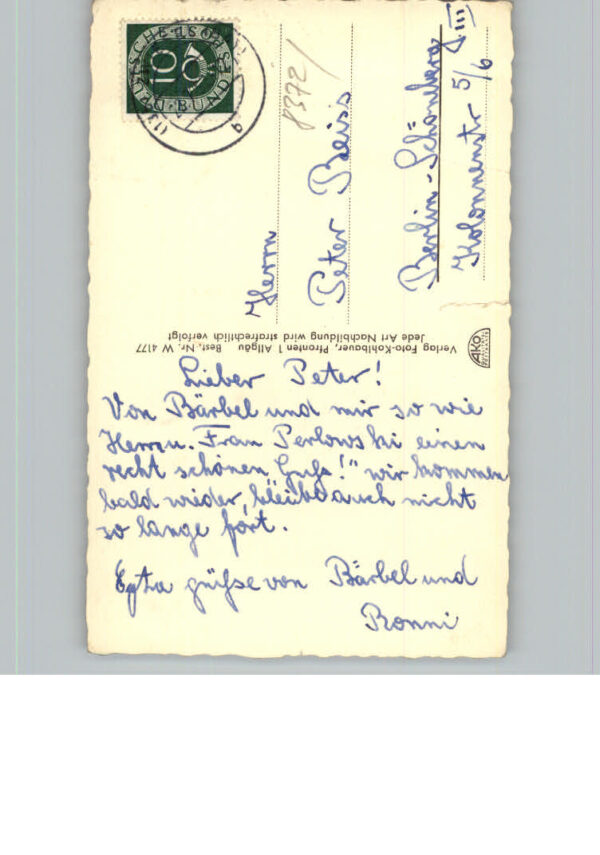 Lieber Peter!
Von Bärbel und mir so wie
Herrn u. Frau Perlowski einen
recht schönen Gruß!" wir kommen
bald wieder, bleibe auch nicht
so lange fort.
Extra grüße von Bärbel und
Ronni
Herrn
Peter Beiss
Berlin-Schöneberg
Kolonnenstr 5/6
III
8372/
Verlag Foto-Kohlbauer, Pfronten 1 Allgäu Best.-Nr. W 4177
Jede Art Nachbildung wird strafrechtlich verfolgt
AKO
DEUTSCHE BUNDESPOST
10
b